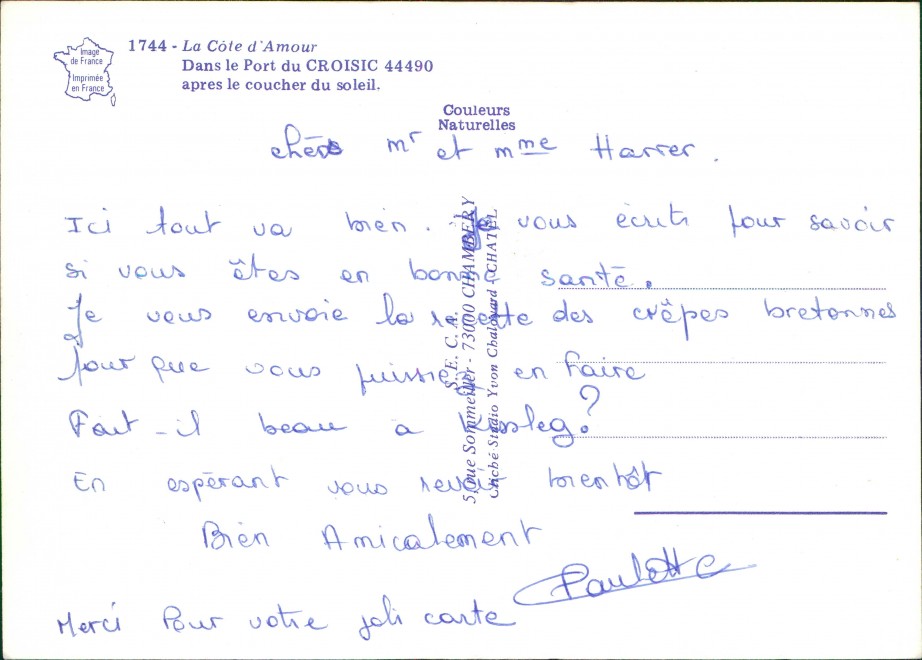 Image
de France
Imprimée
en France
1744 - La Côte d'Amour
Dans le Port du CROISIC 44490
apres le coucher du soleil.
Couleurs
Naturelles
chers Mr et Mme Harrer.
Ici tout va bien. Je vous écrits pour savoir
si vous êtes en bonne santé.
Je vous envoie la recette des crêpes bretonnes
pour que vous puissiez en faire
Fait-il beau à Kissleg?
En espérant vous revoir bientôt
Bien Amicalement
Paulette
Merci Pour votre joli carte
S. E. C. A.
rue Sommeiller - 73000 CHAMBERY
Cliché Studio Yvon Chalouard - CHATEL